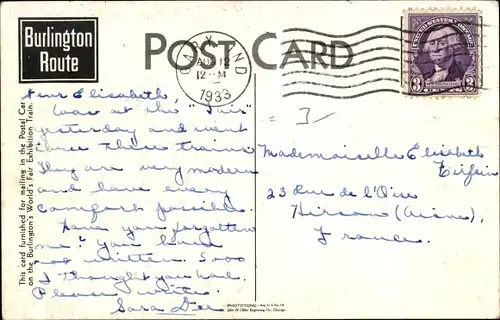 Burlington
Route
POST CARD
AUG 12
12 M
1933
UNITED STATES POSTAGE
3 WASHINGTON 3
Dear Elisabeth,
Was at the "Fair"
yesterday and went
thru these trains
They are very modern
and have every
comfort possible.
Have you forgotten
me? You have
not written. Sooo
I thought you had.
Please write.
Sara Dee
3
Mademoiselle Elisabeth
23 Rue de l'Oise
Hirson (Aisne),
France.
This card furnished for mailing in the Postal Car
on the Burlington's World's Fair Exhibition Train.
PHOTOTONE